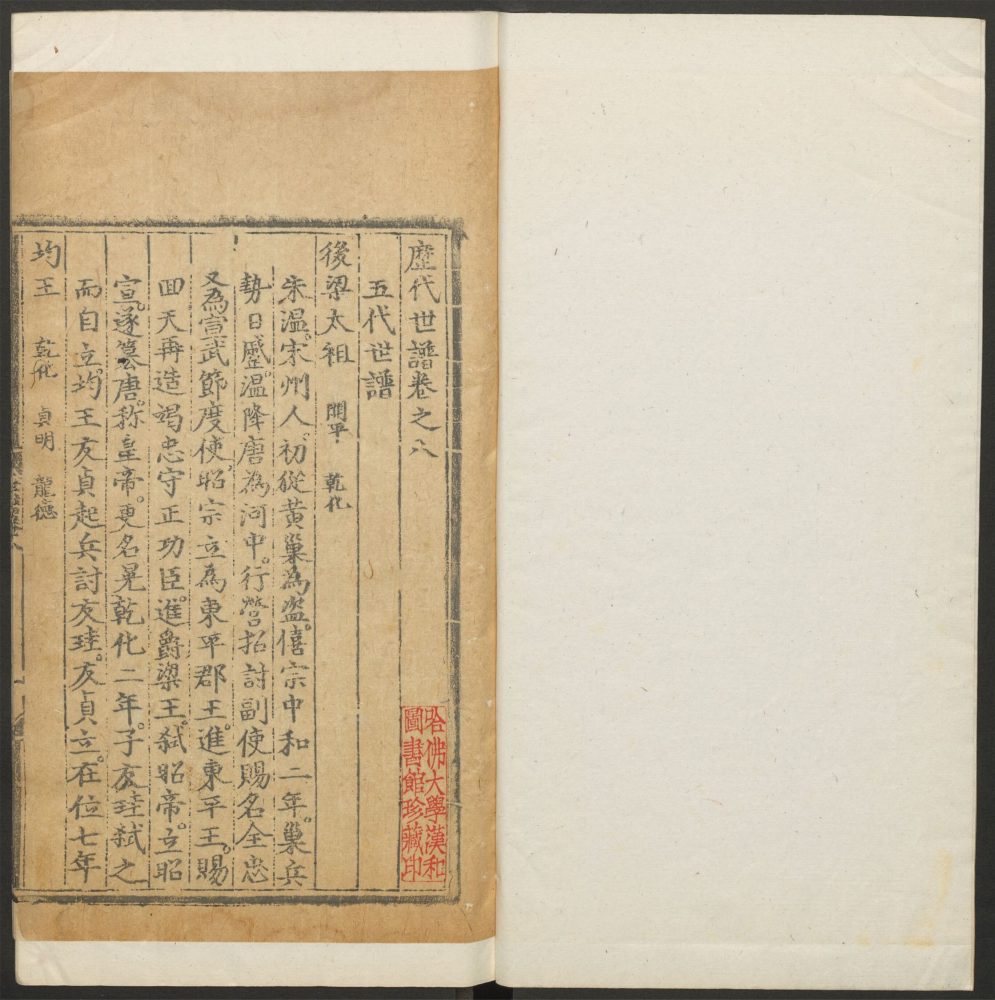 歷代世譜卷之八
五代世譜
後梁太祖 開平 乾化
朱溫。宋州人。初從黃巢為盗。僖宗中和二年。巢兵
勢日蹙。溫降唐為河中。行營招討副使賜名全忠
又為宣武節度使。昭宗立為東平郡王。進東平王。賜
回天再造竭忠守正功臣。進爵梁王。弒昭帝。立昭
宣。遂簒唐。称皇帝。更名晃乾化二年。子友珪弒之
而自立。均王友貞起兵討友珪。友貞立。在位七年
均王 乾化 貞明 龍德
哈佛大學漢和
圖書館珍藏印